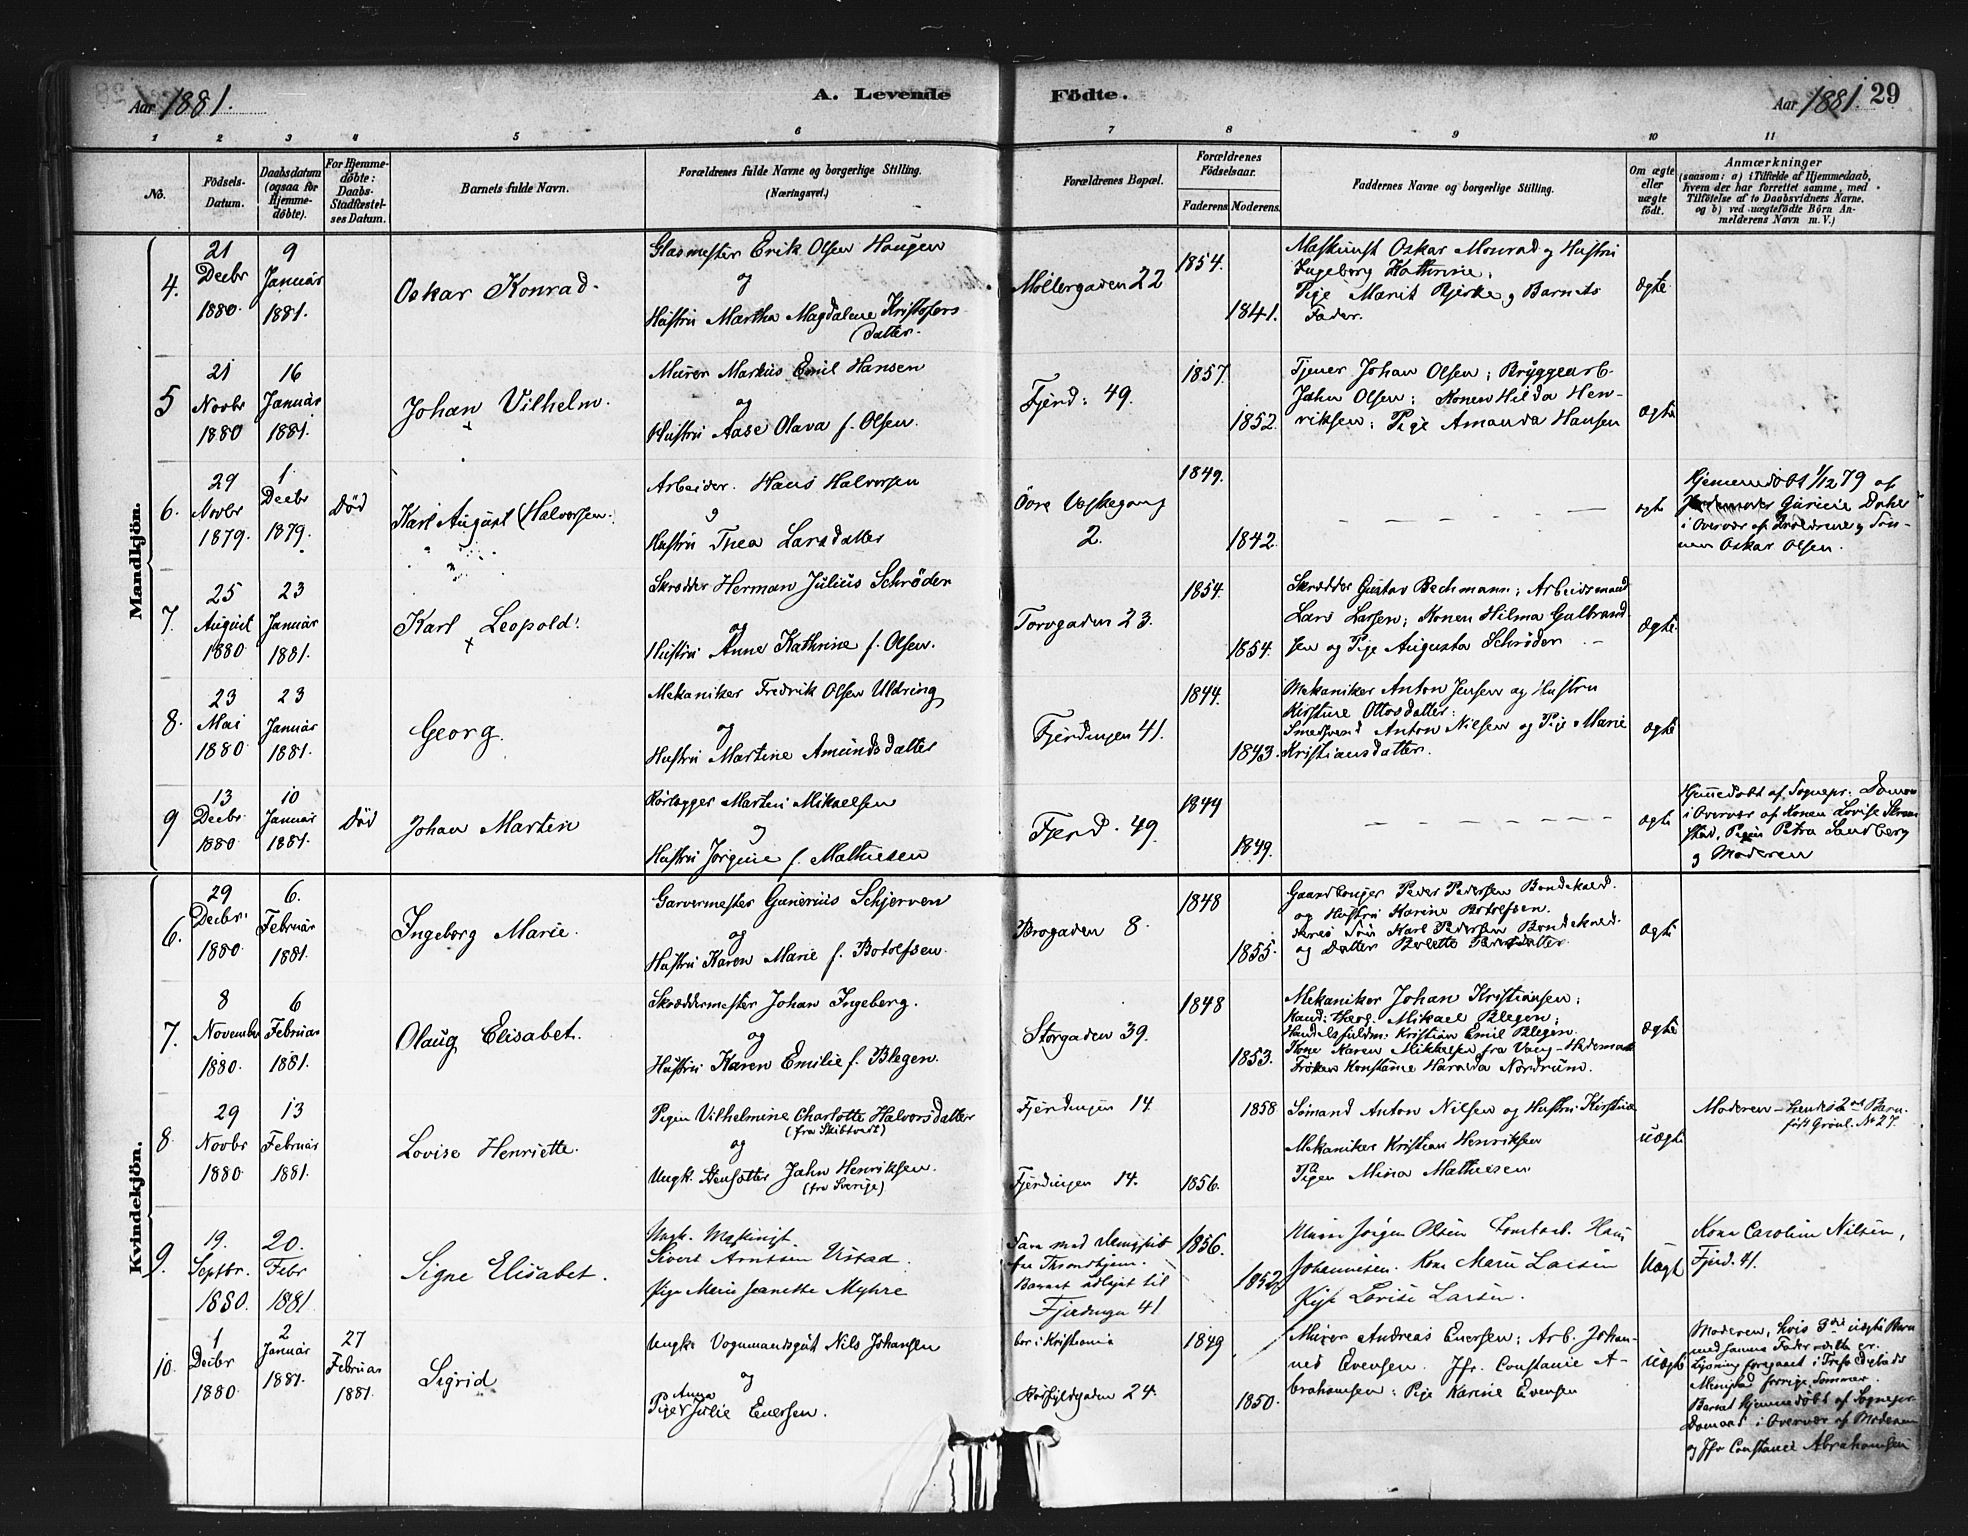 Aar 1881.
A. Levende Födte.
Aar 1881. 29
1 2 3 4 5 6 7 8 9 10 11
No.
Födsels-Datum.
Daabsdatum (ogsaa for Hjemme-döbte).
For Hjemme-döbte: Daabs-Stadfæstel-ses Datum.
Barnets fulde Navn.
Forældrenes fulde Navne og borgerlige Stilling.
(Næringsvei.)
Forældrenes Bopæl.
Forældrenes Födselsaar.
Faderens. Moderens.
Faddernes Navne og borgerlige Stilling.
Om ægte eller uægte födt.
Anmærkninger
(saasom: a) i Tilfælde af Hjemmedaab,
hvem der har forrettet samme, med
Tilföielse af to Daabsvidners Navne,
og b) ved uægtefödte Börn An-
melderens Navn m. V.)
Mandkjön.
4. 21 Decbr 1880. 9 Januar 1881.
Oskar Konrad.
Glasmester Erik Olsen Haugen
og
Hustru Martha Magdalene Kristofers
datter.
Möllergaden 22
1854. 1841.
Maskinist Oskar Monrad og Hustru
Ingeborg Kathrine;
Pige Marit Bjerke og Barnets
Fader.
Ægte
5 21 Novbr 1880 16 Januar 1881.
Johan Vilhelm.
Murer Markus Emil Hansen
og
Hustru Aase Olava f. Olsen.
Fjerd: 49.
1857. 1852.
Tjener Johan Olsen; Bryggearb.
John Olsen; Konen Hilda Hen-
riksen; Pige Amanda Hansen
ægte
6. 29 Novbr 1879. 1 Decbr 1879. Död
Karl August (Halvorsen.
Arbeider. Hans Halvorsen
og
Hustru Thea Larsdatter
Övre Vaskegang
2.
1849. 1842.
ægte
Hjemmedöbt 1/12 79 af
Jordemoder Gurine Dahl
i Overvær af Forældrene og
Oskar Olsen.
7. 25 August 1880. 23 Januar 1881.
Karl Leopold.
Skrædder Herman Julius Schröder
og
Hustru Anne Kathrine f. Olsen.
Torvgaden 23.
1854. 1854.
Skrædder Gustav Bechmann; Arbeidsmand
Lars Larsen; Konen Hilma Gulbrand-
sen og Pige Augusta Schröder
Ægte.
8. 23 Mai 1880. 23 Januar 1881.
Georg.
Mekaniker Fredrik Olsen Uldring
og
Hustru Martine Amundsdatter
Fjerdingen 41.
1844. 1843.
Mekaniker Anton Jensen og Hustru
Kirstine Ottosdatter;
Smedsvend Anton Nilsen og Pige Marie
Kristiansdatter.
ægte
9 13 Decbr 1880. 10 Januar 1881. Död
Johan Martin
Rörlægger Martin Mikaelsen
og
Hustru Jörgine f. Mathiesen
Fjerd. 49.
1849 1849.
ægte
Hjemmedöbt af Sognepr. Daman
i Overvær af Konen Lovise
Pigen Petra Sandberg
og Moderen
Kvindekjön.
6. 29 Decbr. 1880. 6. Februar 1881.
Ingeborg Marie.
Garvermester Gunerius Schjerven
og
Hustru Karen Marie f. Botolfsen.
Brogaden 8.
1848 1855.
Gaardbruger Peder Pedersen Bondekved.
og Hustru Karine Botolfsen.
deres Sön Karl Pedersen Bondekved.
og Datter Bolette Pedersdatter.
ægte
7. 8 November 1880. 6 Februar 1881.
Olaug Elisabet.
Skræddermester Johan Ingeberg.
og
Hustru Karen Emilie f. Blegen.
Storgaden 39.
1848 1853.
Mekaniker Johan Kristiansen;
Mikael Blegen;
Handelsfuldm. Kristian Emil Blegen.
Kone Karen Mikkelsen fra Vang-Hedemark
Fröken Konstanse Haralda Nordrum.
ægte
8. 29 Novbr 1880 13 Februar 1881.
Lovise Henriette.
Pigen Vilhelmine Charlotte Halvorsdatter
(fra Skibtvedt)
og
Ungk. Jahn Henriksen.
(fra Sverige)
Fjerdingen 14.
Fjerdingen 14.
1856. 1858.
Sömand Anton Nilsen og Hustru Kirstine
Mekaniker Kristian Henriksen
Pigen Mina Mathiesen
uægte
Moderen – hendes 2det Barn.
Grönl. No 27.
9. 19. Septbr. 1880. 20. Febr 1881
Signe Elisabet.
Ungk. Maskinist
Sivert Arntsen Ustad.
Pige Marie Jeanette Myhre
fra Throndhjem.
Barnet udleiet til
Fjerdingen 41
1856. 1852
Murer Jörgen Olsen Hans
Johannesen. Kone Marie Larsen
Pige Lovise Larsen.
Uægt
Kone Caroline Nilsen,
Fjerd. 41.
10. 1 Decbr 1880. 2 Januar 1881. 27 Februar 1881.
Sigrid
Ungk. Vognmandsgut Nils Johansen
og
Pige Anna Julie Evensen.
bor i Kristiania
24.
1849 1850.
Murer Andreas Evensen; Arb. Johan-
nes Evensen. Jfr. Constanse A-
brahamsen; Pige Karine Evensen
Uægte
Moderen, hvis 3die uægte Barn
med samme Fader dette er.
Lysning foregaaet i
Menighed forrige Sommer.
Barnet hjemmedöbt af Sognepr.
Daman i Overvær af Moderen
og Jfr Constance Abrahamsen